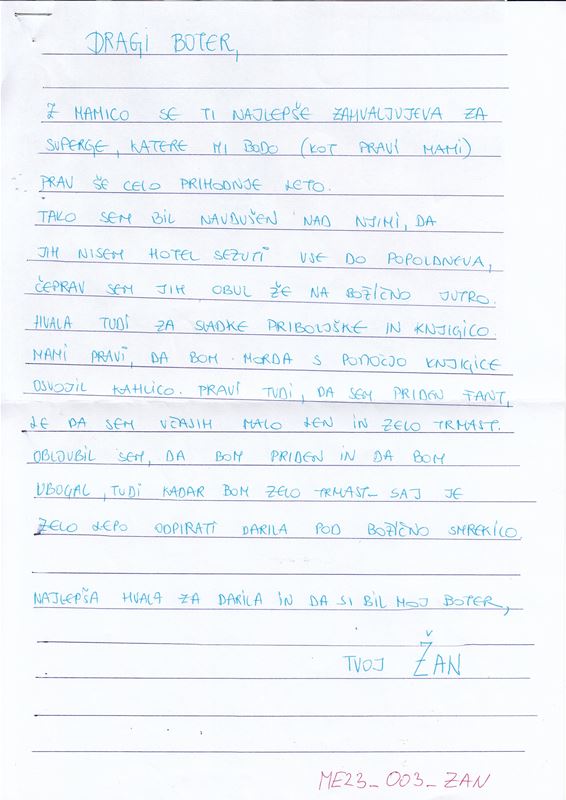 DRAGI BOTER,
Z MAMICO SE TI NAJLEPŠE ZAHVALJUJEVA ZA
SUPERGE, KATERE MI BODO (KOT PRAVI MAMI)
PRAV ŠE CELO PRIHODNJE LETO.
TAKO SEM BIL NAVDUŠEN NAD NJIMI, DA
JIH NISEM HOTEL SEZUTI VSE DO POPOLDNEVA,
ČEPRAV SEM JIH OBUL ŽE NA BOŽIČNO JUTRO.
HVALA TUDI ZA SLADKE PRIBOLJŠKE IN KNJIGICO.
MAMI PRAVI, DA BOM MORDA S POMOČJO KNJIGICE
OSVOJIL KAHLICO. PRAVI TUDI, DA SEM PRIDEN FANT,
LE DA SEM VČASIH MALO LEN IN ZELO TRMAST.
OBLJUBIL SEM, DA BOM PRIDEN IN DA BOM
UBOGAL, TUDI KADAR BOM ZELO TRMAST_ SAJ JE
ZELO LEPO ODPIRATI DARILA POD BOŽIČNO SMREKICO.
NAJLEPŠA HVALA ZA DARILA IN DA SI BIL MOJ BOTER,
TVOJ ŽAN
ME23_003_ZAN